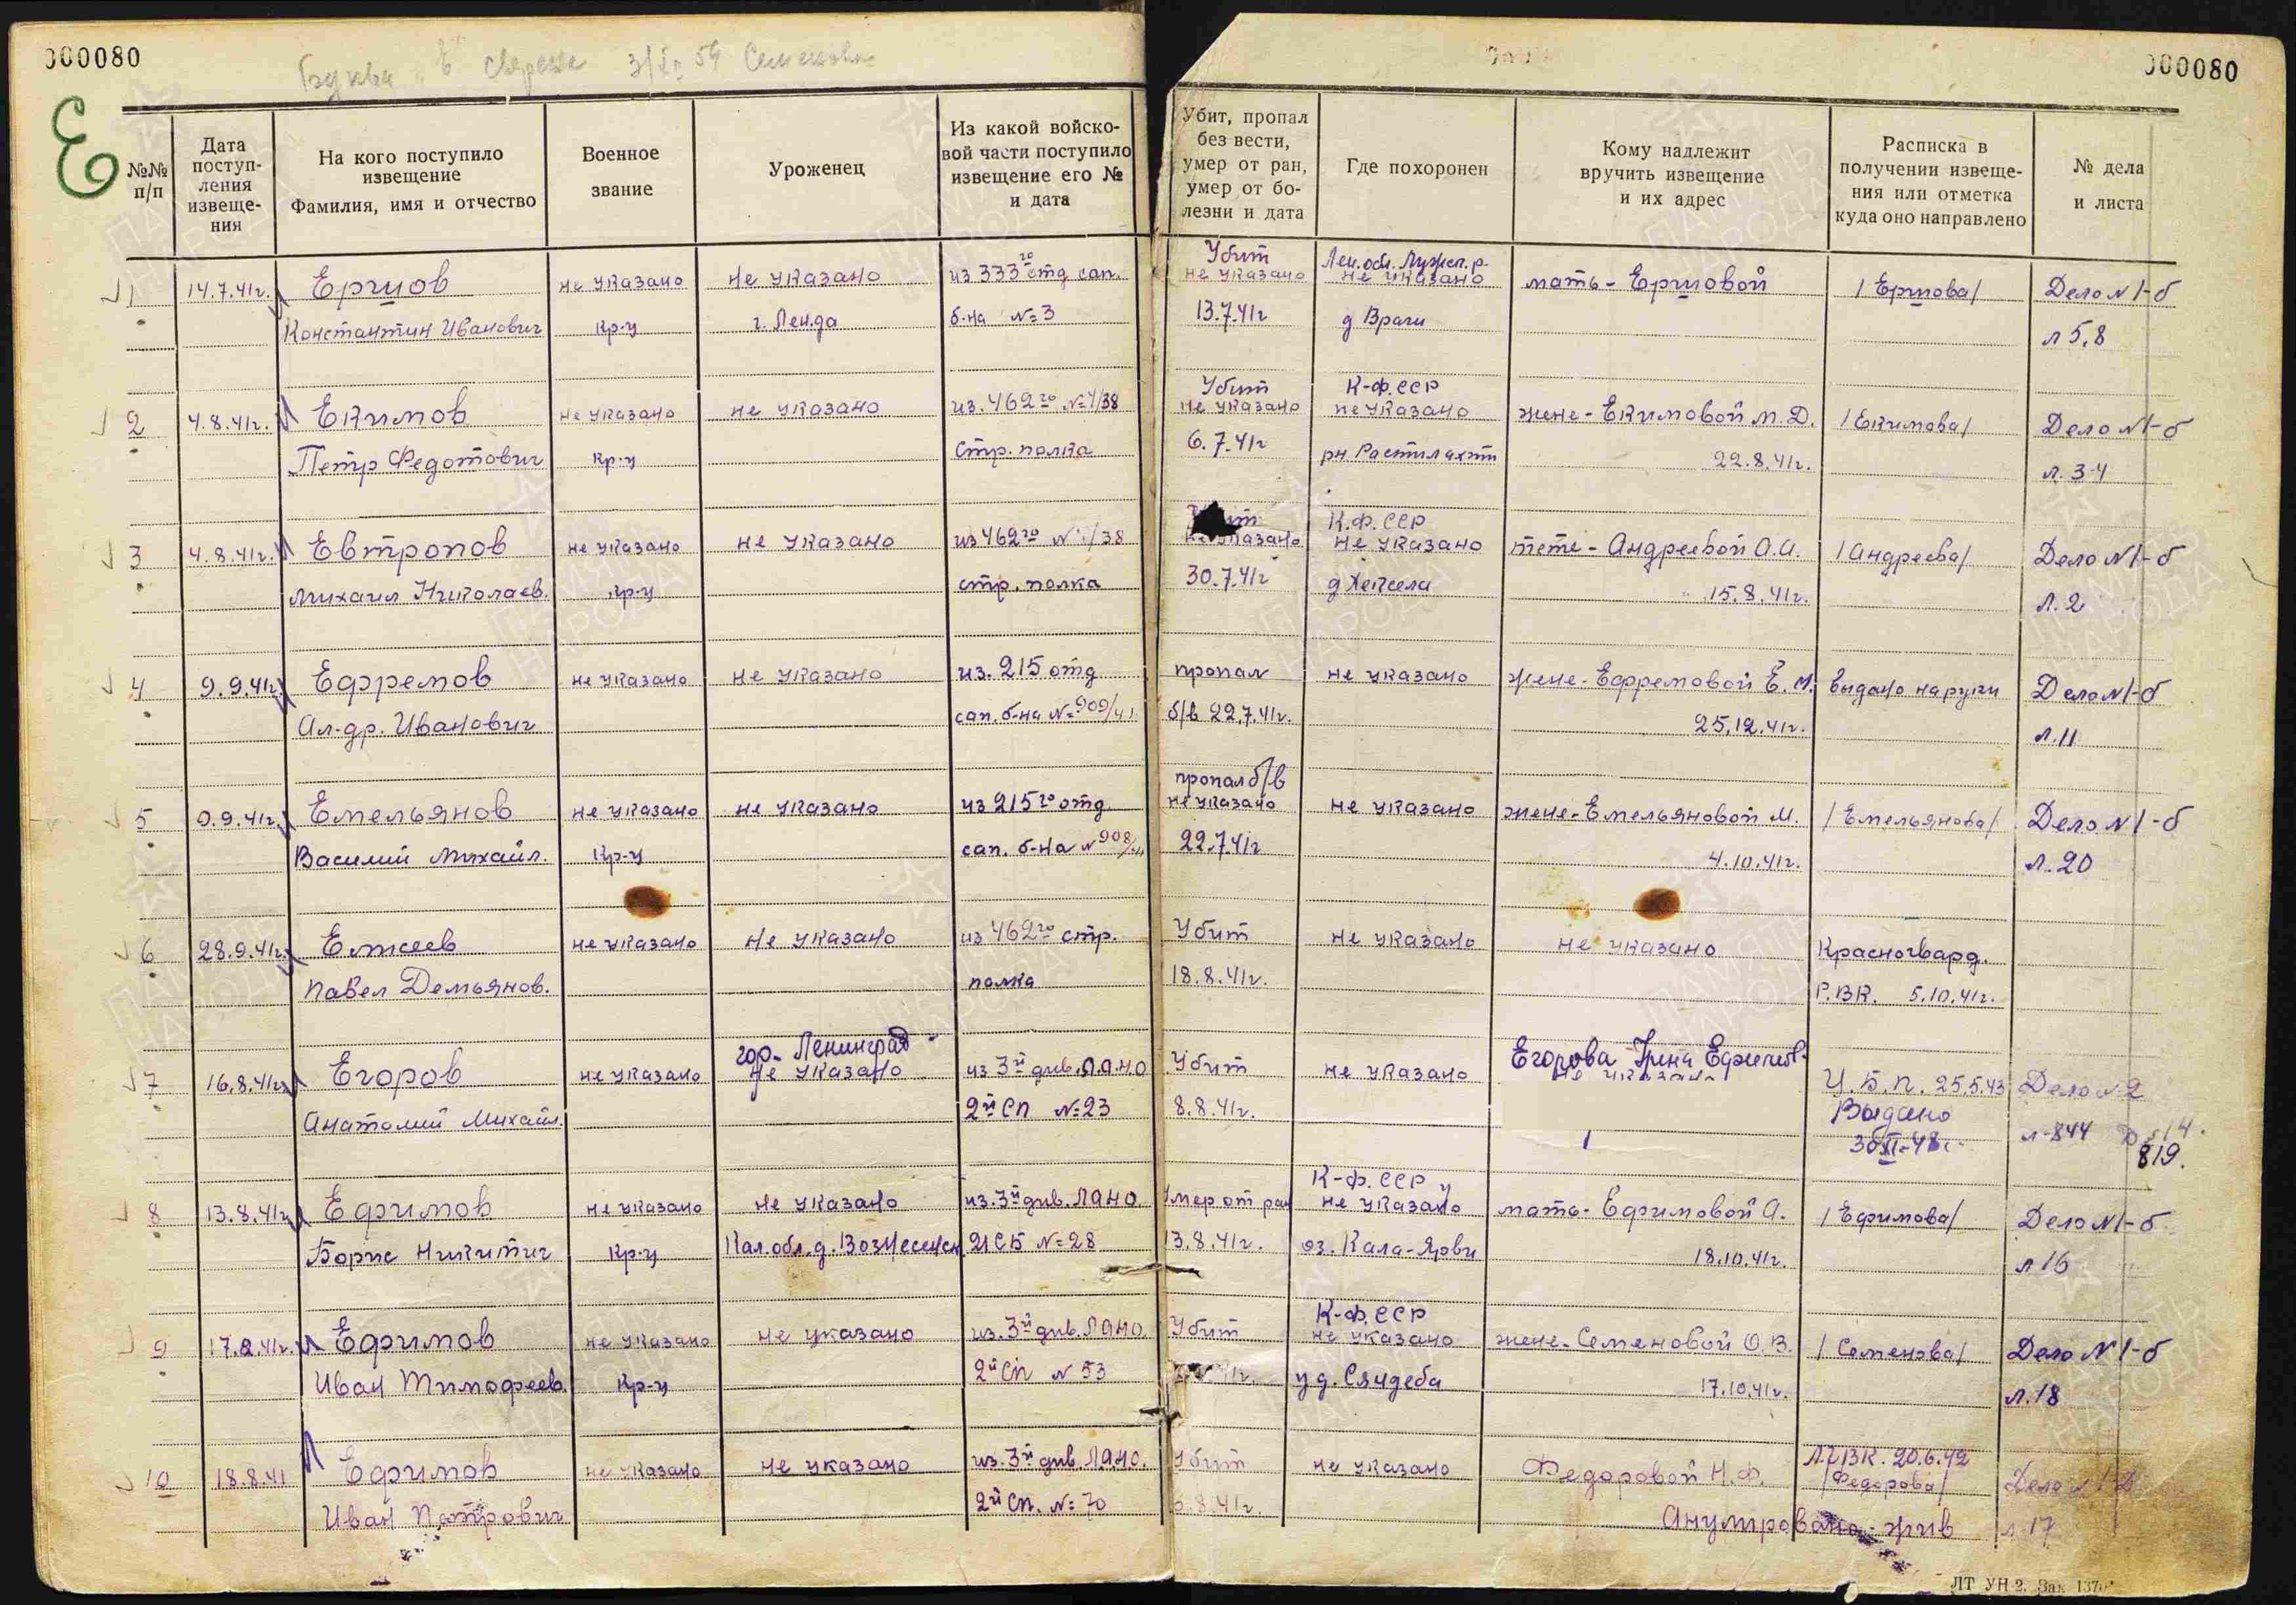 000080
000080
Буква "Е" сверена 3/I-54 Семенова
Е
№№ п/п
Дата поступ-ления извеще-ния
На кого поступило извещение Фамилия, имя и отчество
Военное звание
Уроженец
Из какой войско-вой части поступило извещение его № и дата
Убит, пропал без вести, умер от ран, умер от бо-лезни и дата
Где похоронен
Кому надлежит вручить извещение и их адрес
Расписка в получении извеще-ния или отметка куда оно направлено
№ дела и листа
Убит Лен. обл. Лужск. р.
1 14.7.41г. Ершов не указано не указано из 333го отд. сап. не указано не указано мать - Ершовой /Ершова/ Дело №1-б
Константин Иванович кр-ц г. Лен-да б-на №3 13.7.41г д Враги л 5,8
Убит К-Ф.ССР
2 4.8.41г. Екимов не указано не указано из. 462го №1/38 не указано не указано жене - Екимовой М.Д. /Екимова/ Дело №1-б
Петр Федотович кр-ц стр. полка 6.7.41г рн. Растилахти 22.8.41г. л. 34
К.Ф.ССР
3 4.8.41г. Евтропов не указано не указано из 462го №1/38 не указано не указано тете - Андреевой А.А. /Андреева/ Дело №1-б
Михаил Николаев. кр-ц стр. полка 30.7.41г 15.8.41г. л. 2
4 9.9.41г. Ефремов не указано не указано из. 215 отд пропал не указано жене - Ефремовой Е.М. выдано на руки Дело №1-б
Ал-др. Иванович сап. б-на №909/41 б/в 22.7.41г. 25.12.41г. л. 11
пропал б/в
5 9.9.41г. Емельянов не указано не указано из 215го отд не указано не указано жене - Емельяновой М. /Емельянова/ Дело №1-б
Василий Михайл. кр-ц сап. б-на №908/41 22.7.41г 4.10.41г. л. 20
6 28.9.41г. Елисеев не указано не указано из 462го стр. Убит не указано не указано Красногвард.
Павел Демьянов. полка 18.8.41г. Р.ВК. 5.10.41г.
гор. Ленинград Егорова Ирина Ефимов.
7 16.8.41г. Егоров не указано не указано из 3й див. ЛАНО Убит не указано не указано Ц.Б.П. 25.5.43 Дело №2
Анатолий Михайл. 2й СП №23 8.8.41г. Выдано л-844
30/XI-48г. 819.
К-Ф.ССР
8 13.8.41г. Ефимов не указано не указано из. 3й див. ЛАНО Умер от ран не указано мать - Ефимовой А. /Ефимова/ Дело №1-б
Борис Никитич кр-ц Кал. обл. д. Вознесенск 2й СБ №28 13.8.41г. оз. Кала-Ярви 18.10.41г. л 16
К-Ф.ССР
9 17.8.41г. Ефимов не указано не указано из. 3й див. ЛАНО. Убит не указано жене - Семеновой О.В. /Семенова/ Дело №1-б
Иван Тимофеев. кр-ц 2й СП №53 у д. Сяндеба 17.10.41г. л. 18
10 18.8.41 Ефимов не указано не указано из. 3й див. ЛАНО. Убит не указано Федоровой Н.Ф. ЛГВК. 20.6.42 /Федорова/
Иван Петрович 2й СП. №70 8.41г. Анулировано - жив л 17
ЛТ УН-2. Зак. 137